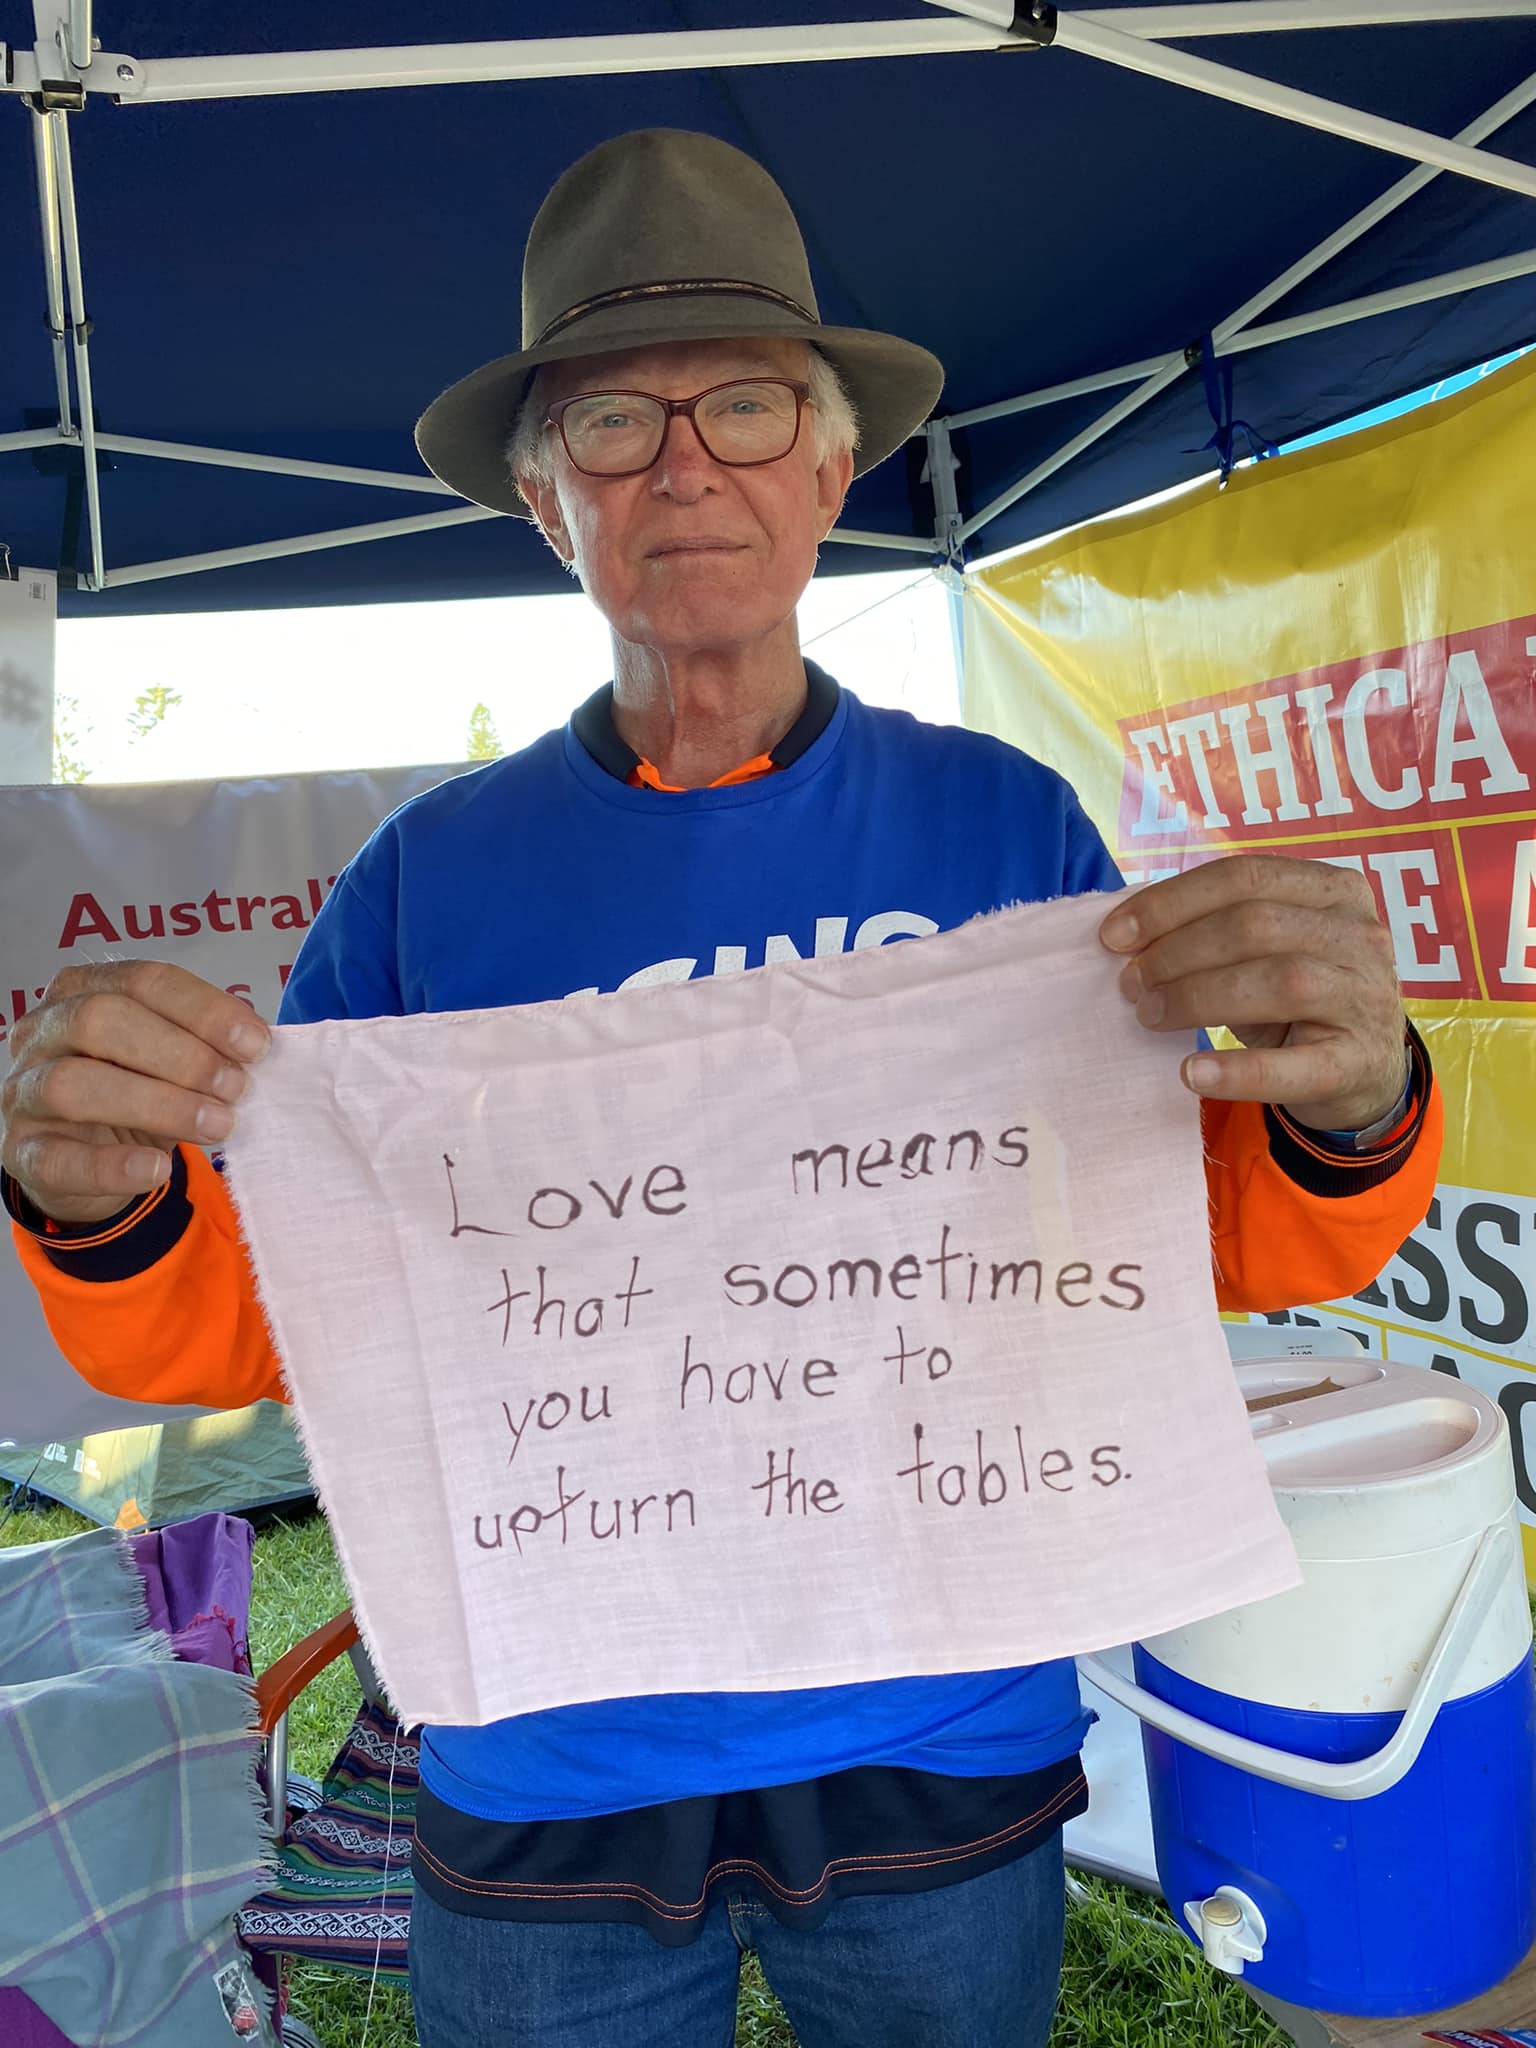 Love means
that sometimes
you have to
upturn the tables.
Austral
ETHICA